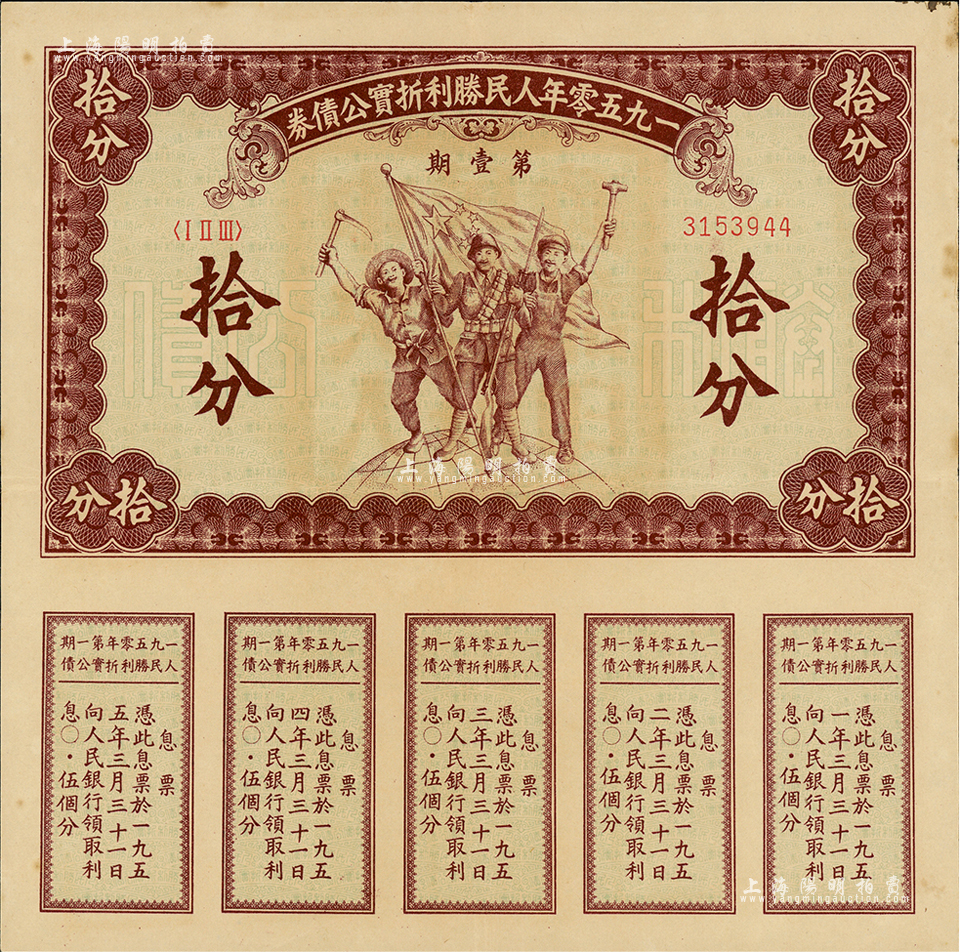 上海陽明拍賣
www.yangmingauction.com
一九五零年人民勝利折實公債券
第壹期
拾分
拾分
〈I II III〉
3153944
拾分
拾分
上海陽明拍賣
www.yangmingauction.com
拾分
拾分
一九五零年第一期
人民勝利折實公債
息票
憑此息票於一九五
一年三月三十一日
向人民銀行領取利
息〇·伍個分
一九五零年第一期
人民勝利折實公債
息票
憑此息票於一九五
二年三月三十一日
向人民銀行領取利
息〇·伍個分
一九五零年第一期
人民勝利折實公債
息票
憑此息票於一九五
三年三月三十一日
向人民銀行領取利
息〇·伍個分
一九五零年第一期
人民勝利折實公債
息票
憑此息票於一九五
四年三月三十一日
向人民銀行領取利
息〇·伍個分
一九五零年第一期
人民勝利折實公債
息票
憑此息票於一九五
五年三月三十一日
向人民銀行領取利
息〇·伍個分
上海陽明拍賣
www.yangmingauction.com